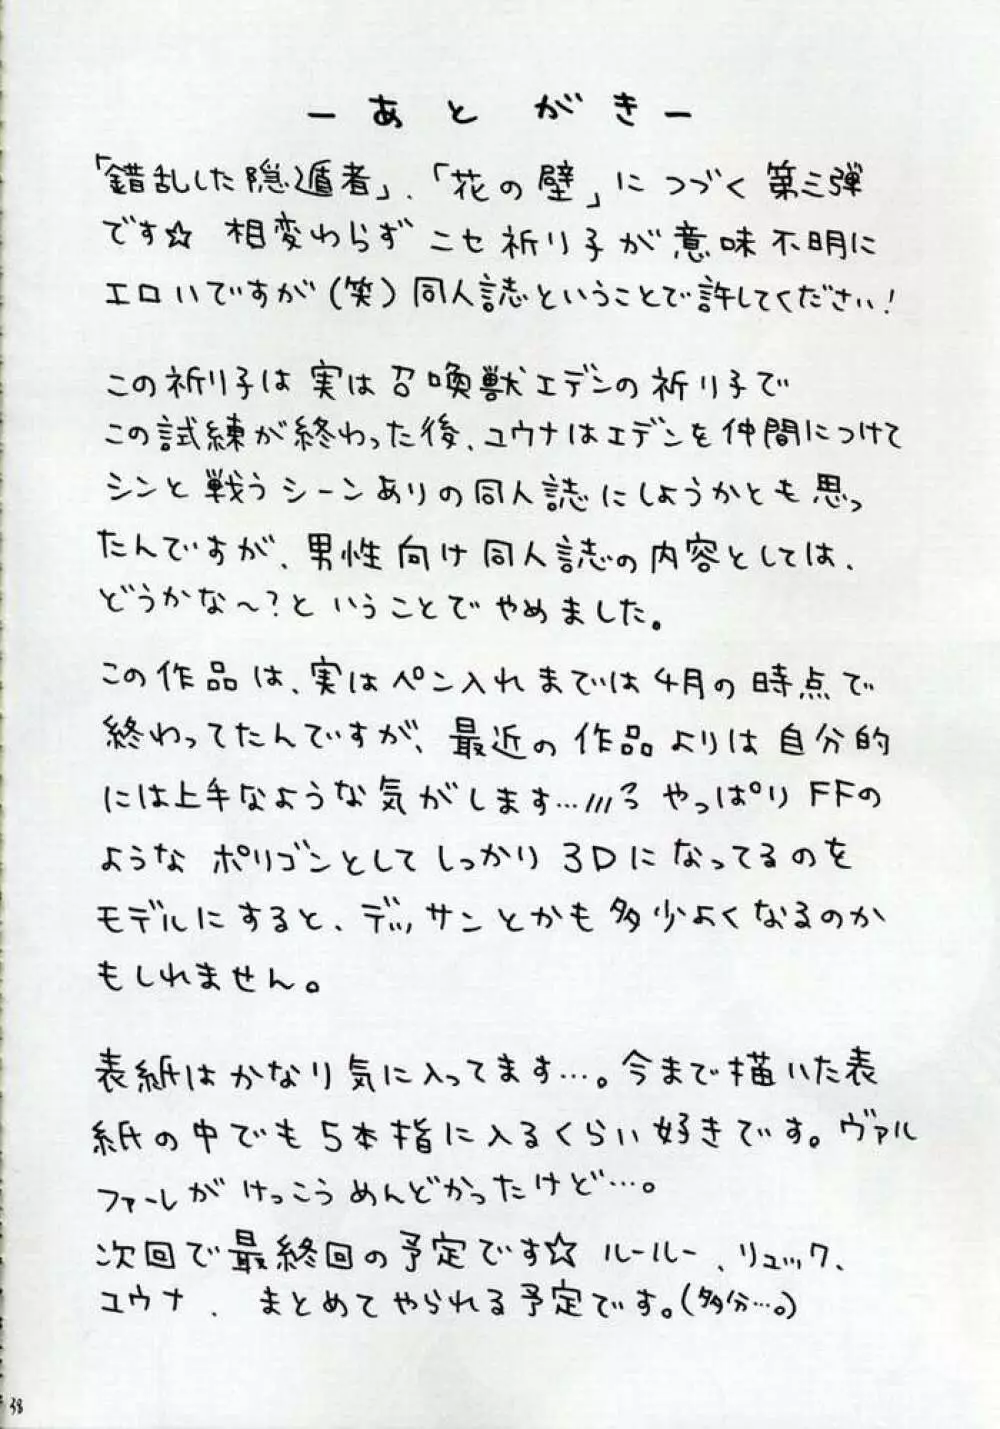 ーあとがきー
「錯乱した隠遁者」、「花の壁」につづく第三弾
です☆ 相変わらずニセ祈り子が意味不明に
エロいですが(笑)同人誌ということで許してください!
この祈り子は実は召喚獣エデンの祈り子で
この試練が終わった後、ユウナはエデンを仲間につけて
シンと戦うシーンありの同人誌にしようかとも思っ
たんですが、男性向け同人誌の内容としては、
どうかな~?ということでやめました。
この作品は、実はペン入れまでは4月の時点で
終わってたんですが、最近の作品よりは自分的
には上手なような気がします…///ろ やっぱりFFの
ような ポリゴンとしてしっかり3Dになってるのを
モデルにすると、デッサンとかも多少よくなるのか
もしれません。
表紙はかなり気に入ってます…。今まで描いた表
紙の中でも5本指に入るくらい好きです。ヴァル
ファーレがけっこうめんどかったけど…。
次回で最終回の予定です☆ ルールー、リュック、
ユウナ、 まとめてやられる予定です。(多分…。)
38